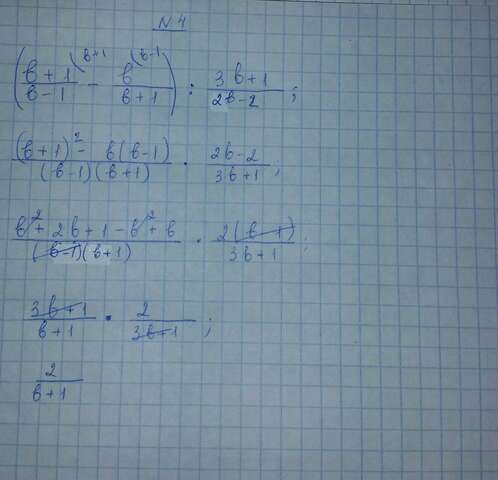 N 4
((b+1)/(b-1) (b+1 - b/(b+1) (b-1) : (3b+1)/(2b-2) ;
((b+1)² - b(b-1))/((b-1)(b+1)) · (2b-2)/(3b+1) ;
(b² + 2b + 1 - b² + b)/((b-1)(b+1)) · 2(b-1)/(3b+1) ;
(3b+1)/(b+1) · 2/(3b+1) ;
2/(b+1)